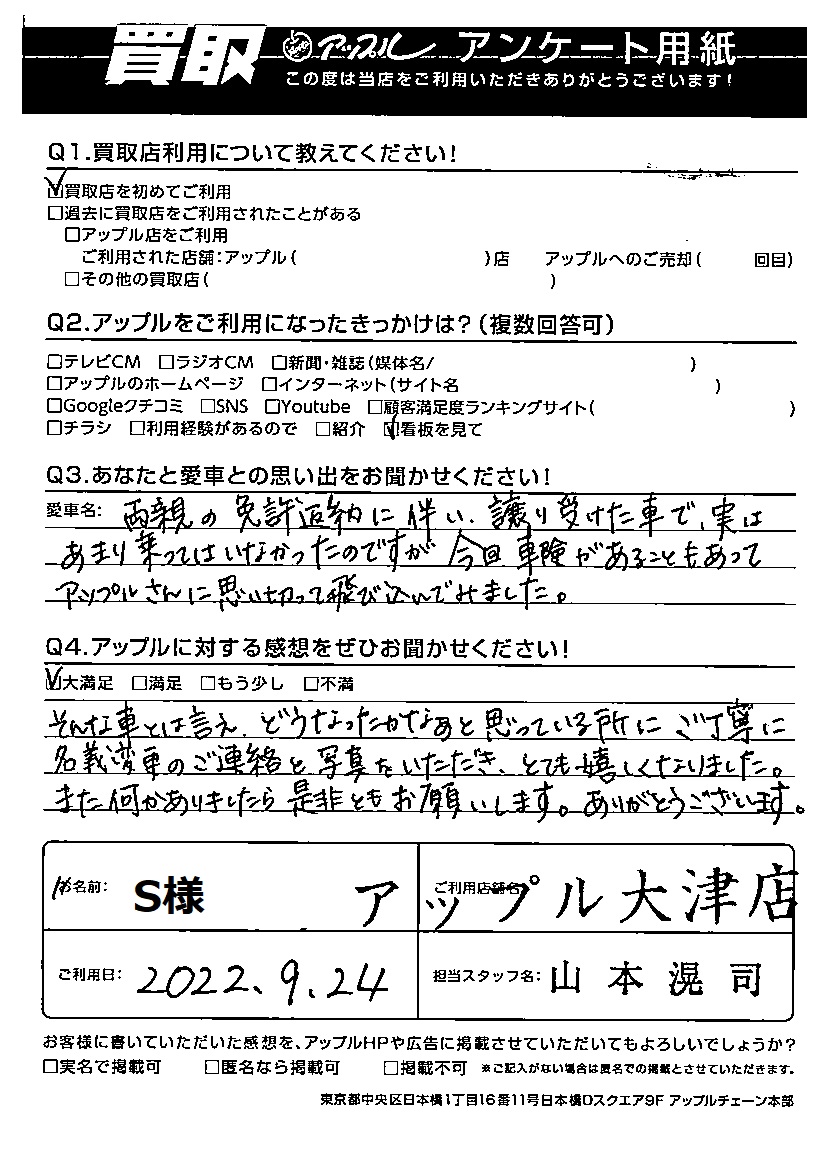 買取 アップル アンケート用紙
この度は当店をご利用いただきありがとうございます!
Q1.買取店利用について教えてください!
☑買取店を初めてご利用
□過去に買取店をご利用されたことがある
□アップル店をご利用
ご利用された店舗:アップル( )店 アップルへのご売却( 回目)
□その他の買取店( )
Q2.アップルをご利用になったきっかけは?(複数回答可)
□テレビCM □ラジオCM □新聞・雑誌(媒体名/ )
□アップルのホームページ □インターネット(サイト名 )
□Googleクチコミ □SNS □Youtube □顧客満足度ランキングサイト( )
□チラシ □利用経験があるので □紹介 ☑看板を見て
Q3.あなたと愛車との思い出をお聞かせください!
愛車名: 両親の免許返納に伴い、譲り受けた車で、実は
あまり乗ってはいなかったのですが 今回車険があることもあって
アップルさんに思い切って飛び込んでみました。
Q4.アップルに対する感想をぜひお聞かせください!
☑大満足 □満足 □もう少し □不満
そんな車とは言え、どうなったかなぁと思っている所に ご丁寧に
名義変更のご連絡と写真をいただき、とても嬉しくなりました。
また何かありましたら是非ともお願いします。ありがとうございます。
お名前: S様
ご利用店舗名: アップル大津店
ご利用日: 2022.9.24
担当スタッフ名: 山本滉司
お客様に書いていただいた感想を、アップルHPや広告に掲載させていただいてもよろしいでしょうか?
□実名で掲載可 □匿名なら掲載可 □掲載不可 ※ご記入がない場合は匿名での掲載とさせていただきます。
東京都中央区日本橋1丁目16番11号日本橋Dスクエア9F アップルチェーン本部